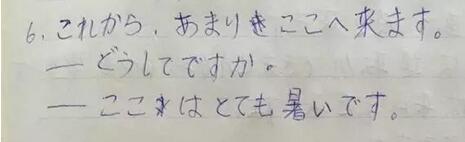 6. これから、あまりここへ来ます。
— どうしてですか。
— ここはとても暑いです。